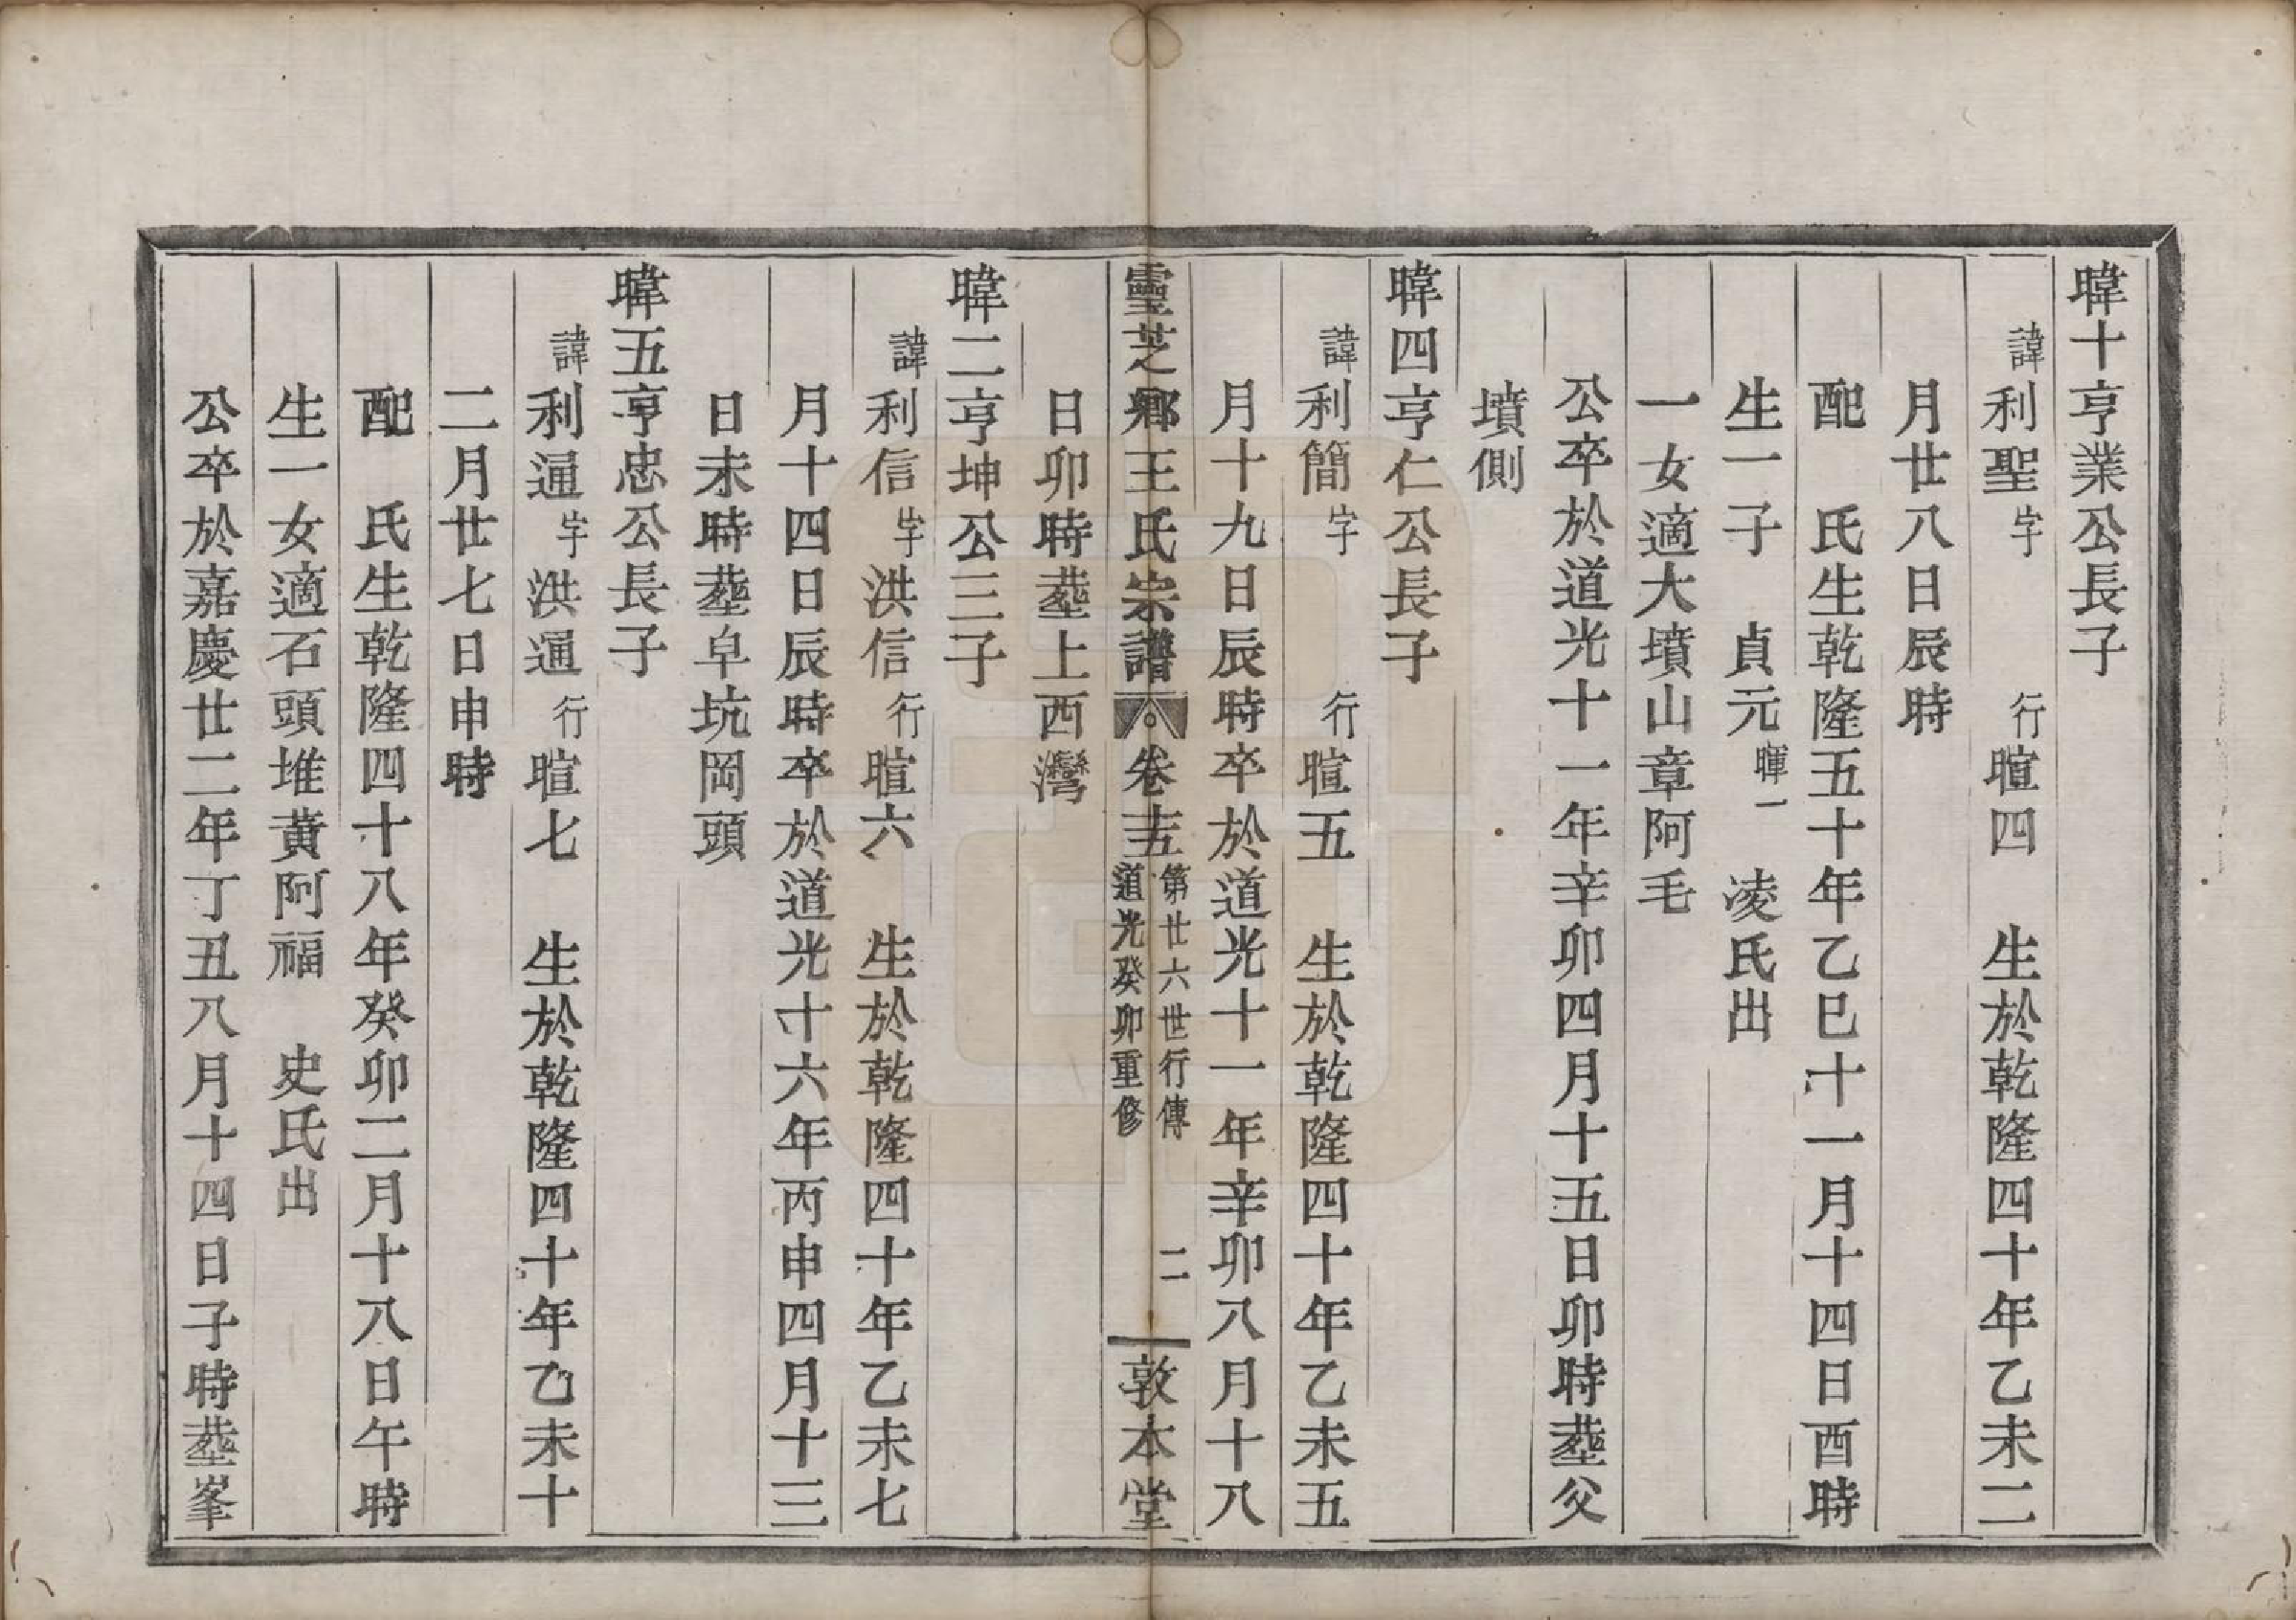 暐十亨業公長子
諱利聖字　行暄四　生於乾隆四十年乙未二
月廿八日辰時
配　氏生乾隆五十年乙巳十一月十四日酉時
生一子　貞元暉一　凌氏出
一女適大墳山章阿毛
公卒於道光十一年辛卯四月十五日卯時塟父
墳側
暐四亨仁公長子
諱利簡字　行暄五　生於乾隆四十年乙未五
月十九日辰時卒於道光十一年辛卯八月十八
靈芝鄉王氏宗譜　卷十五　第廿六世行傳　道光癸卯重修　二　敦本堂
日卯時塟上西灣
暐二亨坤公三子
諱利信字洪信行暄六　生於乾隆四十年乙未七
月十四日辰時卒於道光十六年丙申四月十三
日未時塟皁坑岡頭
暐五亨忠公長子
諱利通字洪通行暄七　生於乾隆四十年乙未十
二月廿七日申時
配　氏生乾隆四十八年癸卯二月十八日午時
生一女適石頭堆黄阿福　史氏出
公卒於嘉慶廿二年丁丑八月十四日子時塟峯